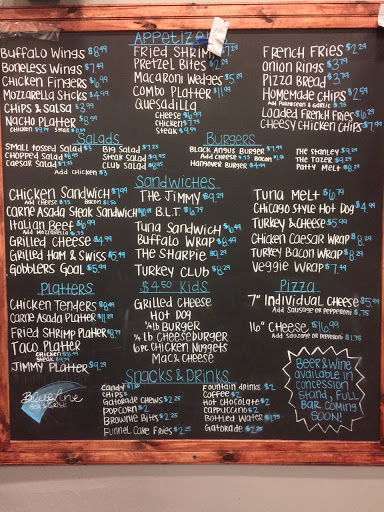 Appetize
Buffalo Wings $8.49
Boneless Wings $7.99
Chicken Fingers $6.99
Mozzarella Sticks $4.99
Chips & Salsa $3.99
Nacho Platter $8.99
Chicken $9.79 Steak $11.99
Fried Shrimp $7.29
Pretzel Bites $2.29
Macaroni Wedges $5.29
Combo Platter $11.99
Quesadilla
Cheese $6.99
Chicken $7.79
Steak $9.99
French Fries $2.29
Onion Rings $3.79
Pizza Bread $3.79
Homemade Chips $2.59
Add Parmesean & Garlic $.75
Loaded French Fries $6.29
Cheesy Chicken Chips $7.99
Salads
Small Tossed Salad $3
Chopped Salad
Caesar Salad
Big Salad $7.25
Steak Salad
Club Salad
Add Chicken $3
Burgers
Black Angus Burger $7.29
Add Cheese Bacon
Hangover Burger
The Stanley $9.29
The Tazer $9.29
Patty Melt $8.29
Sandwiches
Chicken Sandwich $7.99
Add Cheese Bacon
Carne Asada Steak Sandwich
Italian Beef $6.99
Add Mozzarella
Grilled Cheese $4.99
Grilled Ham & Swiss $5.49
Gobblers Goal $5.99
The Jimmy $9.29
B.L.T. $6.79
Tuna Sandwich $6.49
Buffalo Wrap $8.49
The Sharpie $9.29
Turkey Club $8.29
Tuna Melt $6.79
Chicago Style Hot Dog $4.99
Turkey & Cheese $5.99
Chicken Caesar Wrap $8.29
Turkey Bacon Wrap $8.29
Veggie Wrap $7.49
Platters
Chicken Tenders $8.49
Carne Asada Platter $11.29
Fried Shrimp Platter $8.79
Taco Platter
Chicken
Steak
Jimmy Platter $9.29
$4.50 Kids
Grilled Cheese
Hot Dog
1/4 lb Burger
1/4 lb Cheeseburger
6pc Chicken Nuggets
Mac & Cheese
Pizza
7" Individual Cheese $5.99
Add Sausage or Pepperoni $.75
16" Cheese $16.99
Add Sausage or Pepperoni $1.75
Snacks & Drinks
Candy
Chips
Gatorade Chews $2.25
Popcorn $2
Brownie Bites $2.25
Funnel Cake Fries $2.25
Fountain Drinks $2
Coffee $2
Hot Chocolate $2
Cappuccino $2
Bottled Water $1.75
Gatorade $2.25
Blue Line
Bar & Grill
Beer & Wine
available in
concession
stand, full
bar coming
soon!